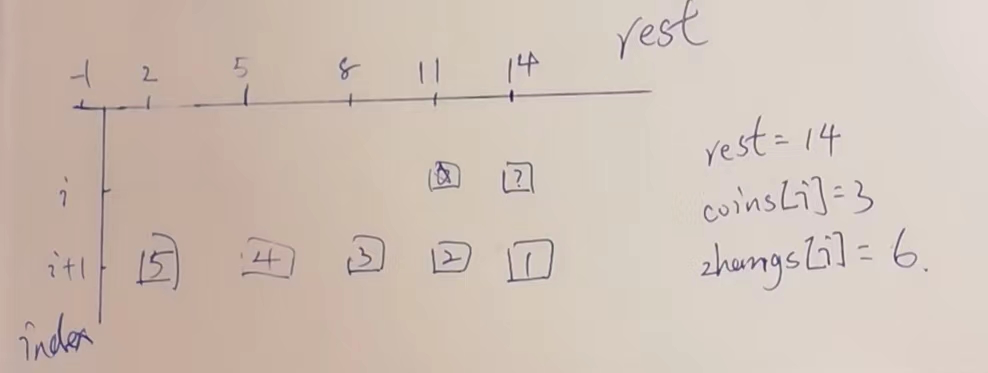 rest
-1 2 5 8 11 14
i ?
i+1 5 4 3 2 1
index
rest = 14
coins[i] = 3
zhangs[i] = 6.